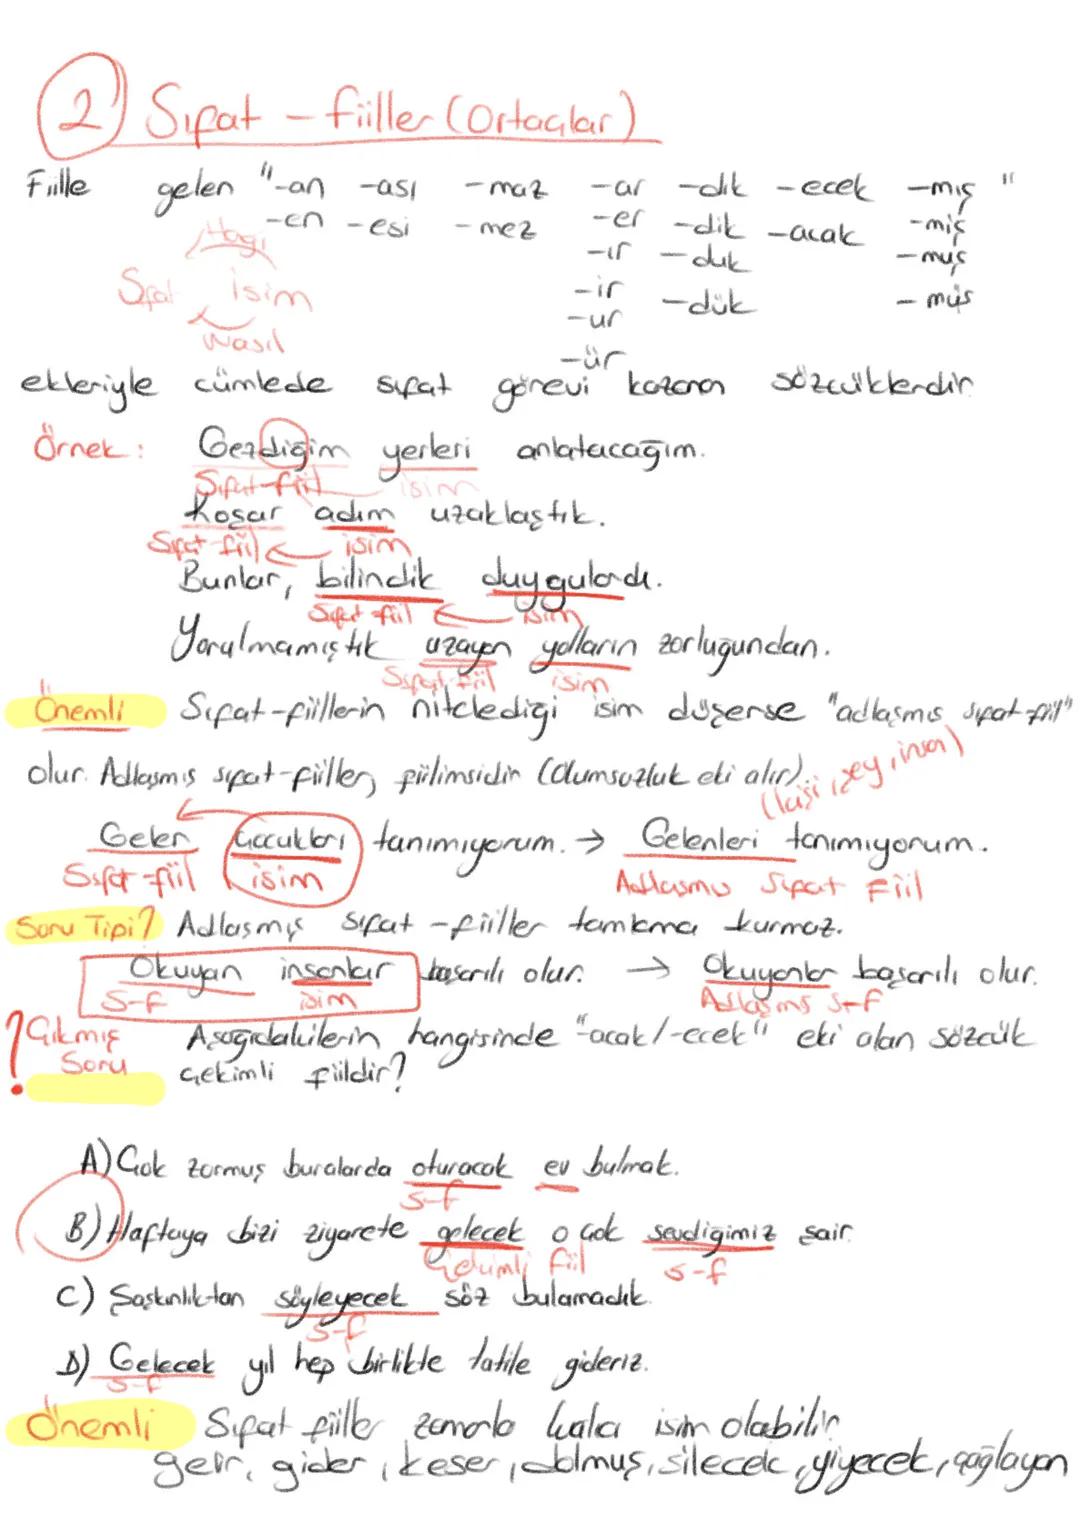 2) Sıfat - fiiller (Ortaçlar)
Fiille gelen "-an -ası -maz -ar -dık -ecek -mış "
-en -esi -mez -er -dik -acak -miş
Hangi
-ır -duk -muş
Sıfat isim
-ir -dük -müş
-ur
Nasıl
-ür
ekleriyle cümlede sıfat görevi kazanan sözcüklerdir.
Örnek: Gezdiğim yerleri anlatacağım.
Sıfat-fiil isim
Koşar adım uzaklaştık.
Sıfat fiil isim
Bunlar, bilindik duygulardı.
Sıfat-fiil isim
Yorulmamıştık uzayan yolların zorluğundan.
Sıfat-fiil isim
Önemli Sıfat-fiillerin nitelediği isim düşerse "adlaşmış sıfat-fiil"
olur. Adlaşmış sıfat-fiiller, fiilimsidir (Olumsuzluk eki alır).
(kişi, şey, insan)
Gelen çocukları tanımıyorum. → Gelenleri tanımıyorum.
Sıfat-fiil isim Adlaşmış Sıfat Fiil
Soru Tipi? Adlaşmış sıfat-fiiller tamlama kurmaz.
Okuyan insanlar başarılı olur. → Okuyanlar başarılı olur.
S-f isim Adlaşmış s-f
! Çıkmış Aşağıdakilerin hangisinde "-acak/-ecek" eki alan sözcük
Soru çekimli fiildir?
A) Çok zormuş buralarda oturacak ev bulmak.
s-f
B) Haftaya bizi ziyarete gelecek o çok sevdiğimiz şair.
Çekimli fiil s-f
C) Şaşkınlıktan söyleyecek söz bulamadık.
s-f
D) Gelecek yıl hep birlikte tatile gideriz.
s-f
Önemli Sıfat fiiller zamanla kalıcı isim olabilir.
gelir, gider, keser, dolmuş, silecek, yiyecek, çağlayan